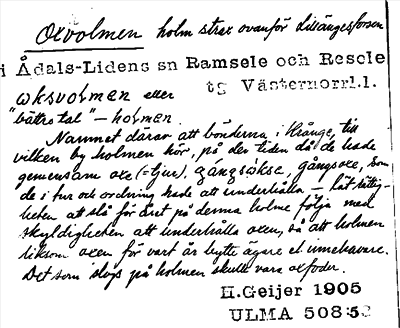 Oxvolmen holm strax ovanför Lillängesforsen
i Ådals-Lidens sn Ramsele och Resele
tg Västernorrl.l.
ωksvolmen eller
"bättre tal" – holmen.
Namnet därav att bönderna i Krånge, till
vilken by holmen hör, på den tiden då de hade
gemensam oxe (=tjur), gångsökse, gångsoxe, som
de i tur och ordning hade att underhålla – lät rättig-
heten att slå för året på denna holme följa med
skyldigheten att underhålla oxen, så att holmen
liksom oxen för vart år bytte ägare el. innehavare.
Det som slogs på holmen skulle vara oxfoder.
H.Geijer 1905
ULMA 508:53